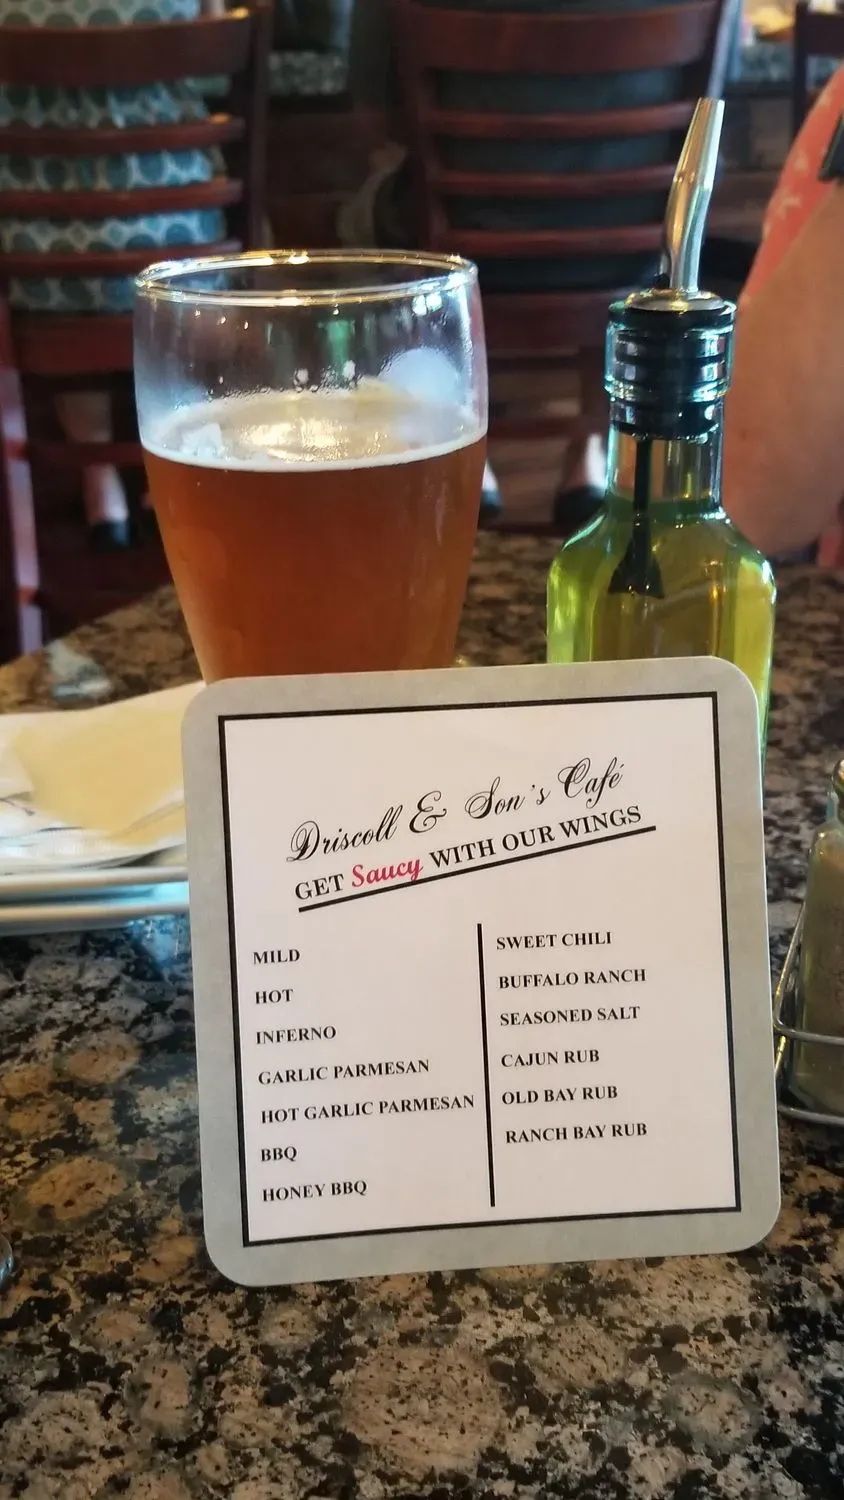 Driscoll & Son's Café
GET Saucy WITH OUR WINGS
MILD
HOT
INFERNO
GARLIC PARMESAN
HOT GARLIC PARMESAN
BBQ
HONEY BBQ
SWEET CHILI
BUFFALO RANCH
SEASONED SALT
CAJUN RUB
OLD BAY RUB
RANCH BAY RUB